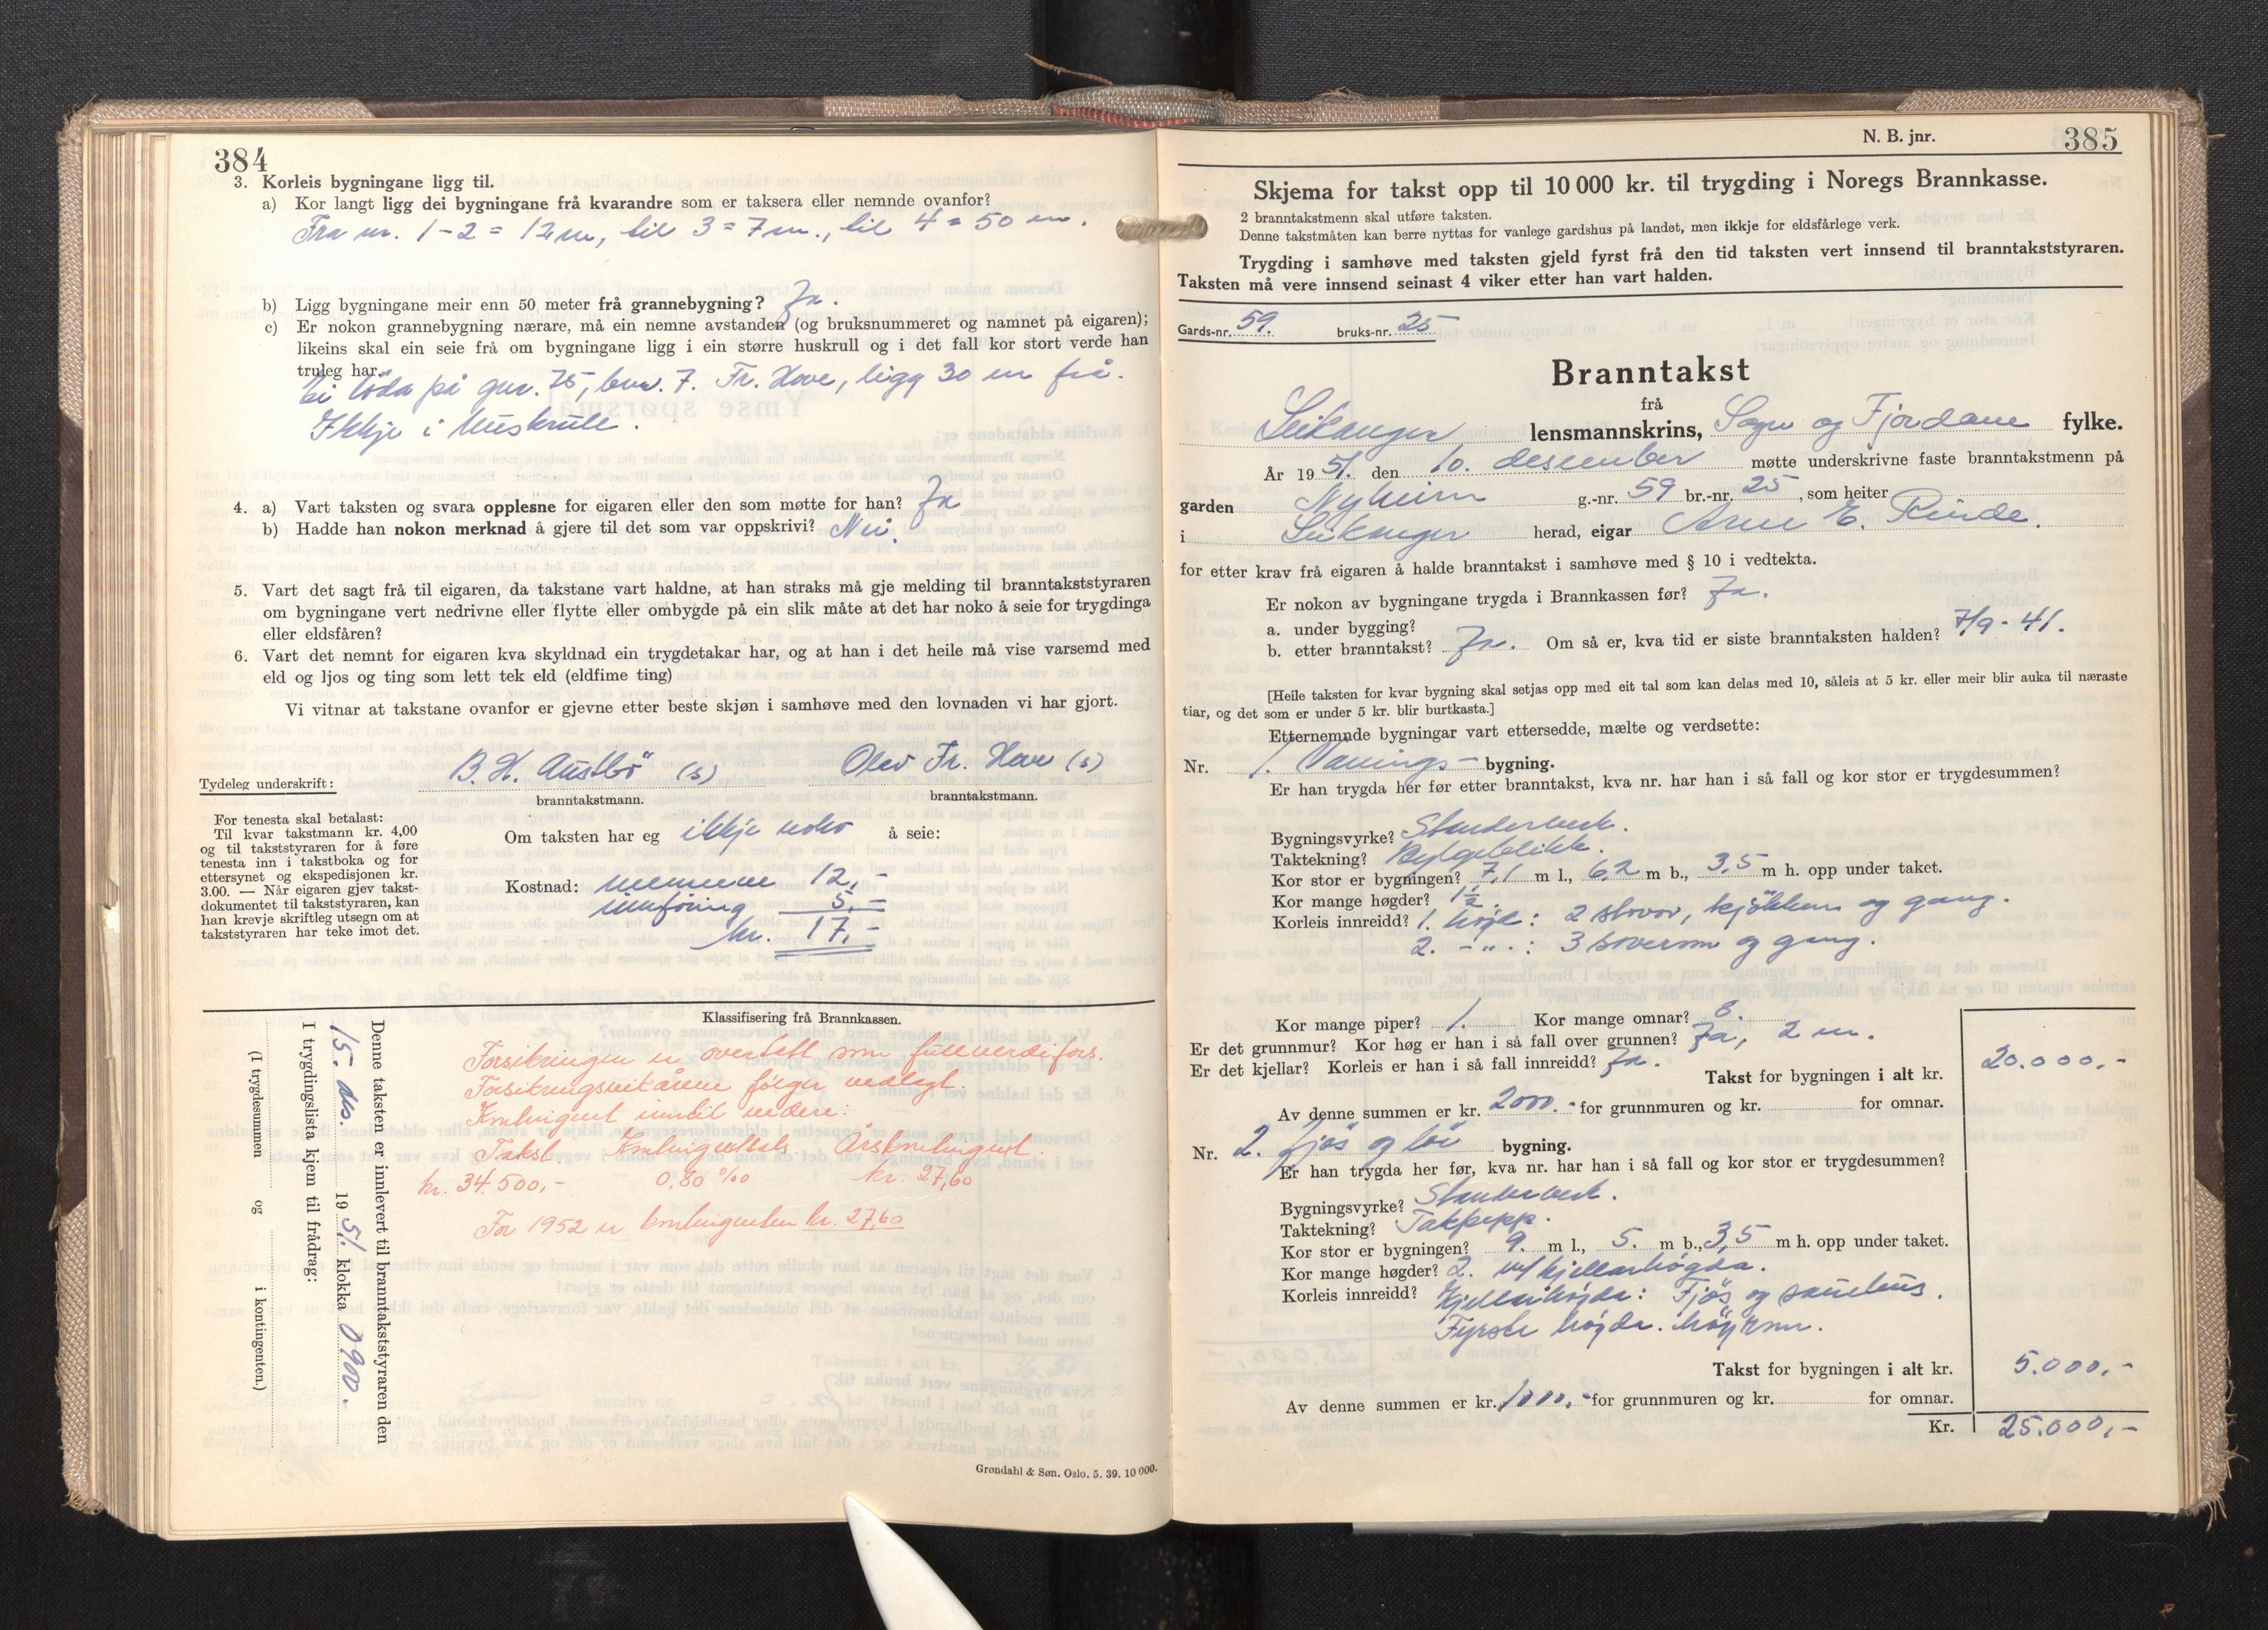 384
3. Korleis bygningane ligg til.
a) Kor langt ligg dei bygningane frå kvarandre som er taksera eller nemnde ovanfor?
Fra nr. 1-2 = 12 m, til 3 = 7 m., til 4 = 50 m.
b) Ligg bygningane meir enn 50 meter frå grannebygning? Ja.
c) Er nokon grannebygning nærare, må ein nemne avstanden (og bruksnummeret og namnet på eigaren);
likeins skal ein seie frå om bygningane ligg i ein større huskrull og i det fall kor stort verde han
truleg har.
Ei löda på gnr. 75, bnr. 7. Fr. Hove, ligg 30 m frå.
Ikkje i huskrull.
4. a) Vart taksten og svara opplesne for eigaren eller den som møtte for han? Ja
b) Hadde han nokon merknad å gjere til det som var oppskrivi? Nei.
5. Vart det sagt frå til eigaren, da takstane vart haldne, at han straks må gje melding til branntakststyraren
om bygningane vert nedrivne eller flytte eller ombygde på ein slik måte at det har noko å seie for trygdinga
eller eldsfåren?
6. Vart det nemnt for eigaren kva skyldnad ein trygdetakar har, og at han i det heile må vise varsemd med
eld og ljos og ting som lett tek eld (eldfime ting)
Vi vitnar at takstane ovanfor er gjevne etter beste skjøn i samhøve med den lovnaden vi har gjort.
Tydeleg underskrift: B. H. Austbö (s) Olav Fr. Hove (s)
branntakstmann. branntakstmann.
For tenesta skal betalast:
Til kvar takstmann kr. 4,00
og til takststyraren for å føre
tenesta inn i takstboka og for
ettersynet og ekspedisjonen kr.
3.00. — Når eigaren gjev takst-
dokumentet til takststyraren, kan
han krevje skriftleg utsegn om at
takststyraren har teke imot det.
Om taksten har eg ikkje noko å seie:
Kostnad: mennene 12,-
innföring 5,-
kr. 17,-
Klassifisering frå Brannkassen.
Forsikringen er overtatt som fullverdifors.
Forsikringsvilkårene følger vedlagt.
Kontingent inntil videre:
Takst. Kontingentsats. Årskontingent.
kr. 34.500,- 0,80 ‰ kr. 27,60
For 1952 er kontingenten kr. 27,60
Denne taksten er innlevert til branntakststyraren den
15. des. 1951. klokka 0900.
I trygdingslista kjem til frådrag:
(I trygdesummen og i kontingenten.)
Grøndahl & Søn. Oslo. 5. 39. 10 000.
N. B. jnr. 385
Skjema for takst opp til 10 000 kr. til trygding i Noregs Brannkasse.
2 branntakstmenn skal utføre taksten.
Denne takstmåten kan berre nyttas for vanlege gardshus på landet, men ikkje for eldsfårlege verk.
Trygding i samhøve med taksten gjeld fyrst frå den tid taksten vert innsend til branntakststyraren.
Taksten må vere innsend seinast 4 viker etter han vart halden.
Gards-nr. 59. bruks-nr. 25
Branntakst
frå
Leikanger lensmannskrins, Sogn og Fjordane fylke.
År 1951. den 10. desember møtte underskrivne faste branntakstmenn på
garden Nyheim g.-nr. 59 br.-nr. 25, som heiter
i Leikanger herad, eigar Arne E. Rinde.
for etter krav frå eigaren å halde branntakst i samhøve med § 10 i vedtekta.
Er nokon av bygningane trygda i Brannkassen før? Ja.
a. under bygging?
b. etter branntakst? Ja. Om så er, kva tid er siste branntaksten halden? 7/9-41.
[Heile taksten for kvar bygning skal setjas opp med eit tal som kan delas med 10, såleis at 5 kr. eller meir blir auka til næraste
tiar, og det som er under 5 kr. blir burtkasta.]
Etternemnde bygningar vart ettersedde, mælte og verdsette:
Nr. 1. Vånings- bygning.
Er han trygda her før etter branntakst, kva nr. har han i så fall og kor stor er trygdesummen?
Bygningsvyrke? Standerverk.
Taktekning? Bylgeblikk.
Kor stor er bygningen? 7,1 m l., 6,2 m b., 3,5 m h. opp under taket.
Kor mange høgder? 1½.
Korleis innreidd? 1. högd: 2 stovor, kjökken og gang.
2. -"-: 3 soverom og gang.
Kor mange piper? 1. Kor mange omnar? 3.
Er det grunnmur? Kor høg er han i så fall over grunnen? Ja, 2 m.
Er det kjellar? Korleis er han i så fall innreidd? Ja.
Takst for bygningen i alt kr. 20.000,-
Av denne summen er kr. 2000.- for grunnmuren og kr. for omnar.
Nr. 2. fjös og löe bygning.
Er han trygda her før, kva nr. har han i så fall og kor stor er trygdesummen?
Bygningsvyrke? Standerverk.
Taktekning? Takpapp.
Kor stor er bygningen? 9. m l., 5. m b., 3,5 m h. opp under taket.
Kor mange høgder? 2. m/kjellarhögda.
Korleis innreidd? Kjellarhögda: Fjös og sauehus.
Fyrste högda: höyrom.
Takst for bygningen i alt kr. 5.000,-
Av denne summen er kr. 1000,- for grunnmuren og kr. for omnar.
Kr. 25.000,-